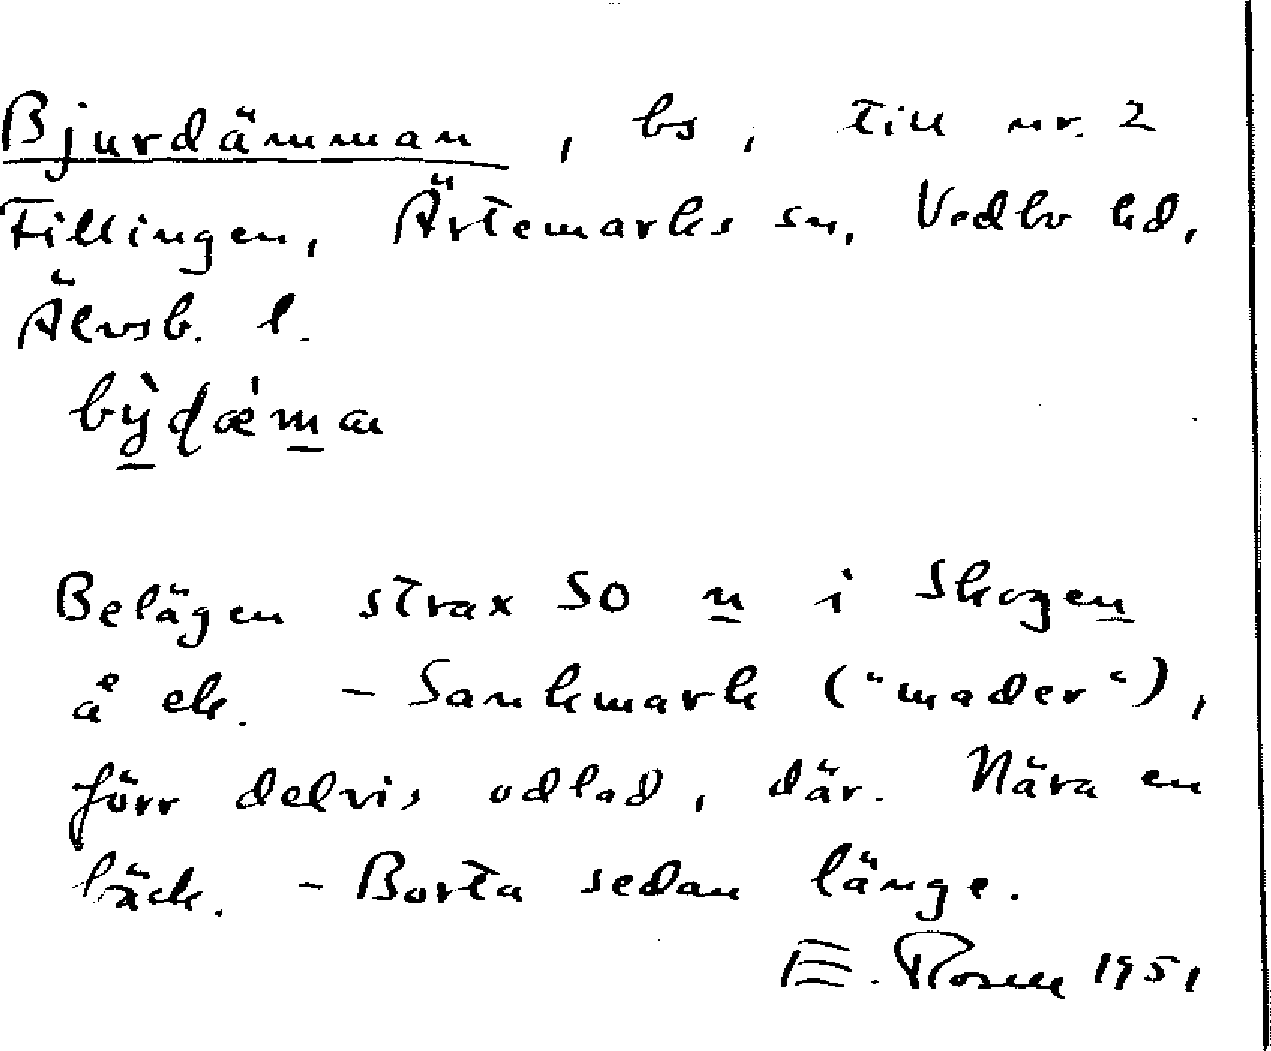 Bjurdämman, bs, till nr. 2
Fillingen, Ärtemarks sn, Vedbo hd,
Älvsb. l.
bỳdǽma
Belägen strax SO n i Skogen
å ek. – Sankmark ("mader"),
förr delvis odlad, där. Nära en
bäck. – Borta sedan länge.
E. Rosen 1951